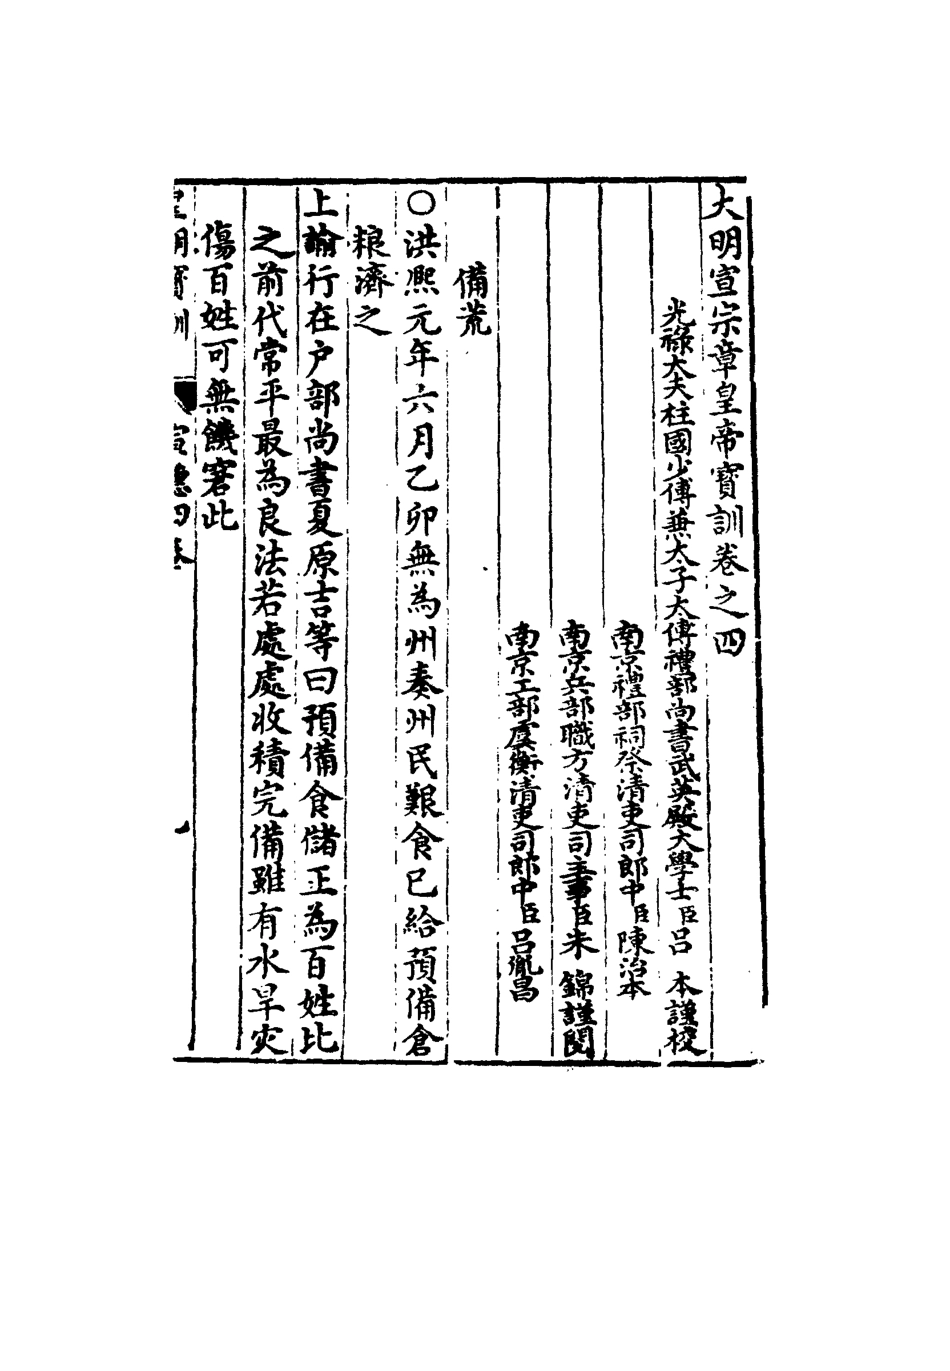 大明宣宗章皇帝寶訓卷之四
光祿大夫柱國少傅兼太子太傅禮部尚書武英殿大學士臣呂 本謹校
南京禮部祠祭清吏司郎中臣陳治本
南京兵部職方清吏司主事臣朱 錦謹閱
南京工部虞衡清吏司郎中臣呂胤昌
備荒
○洪熈元年六月乙卯無為州奏州民艱食已給預備倉
粮濟之
上諭行在户部尚書夏原吉等曰預備食儲正為百姓比
之前代常平最為良法若處處收積完備雖有水旱灾
傷百姓可無饑窘此
皇明寶訓 宣德四卷